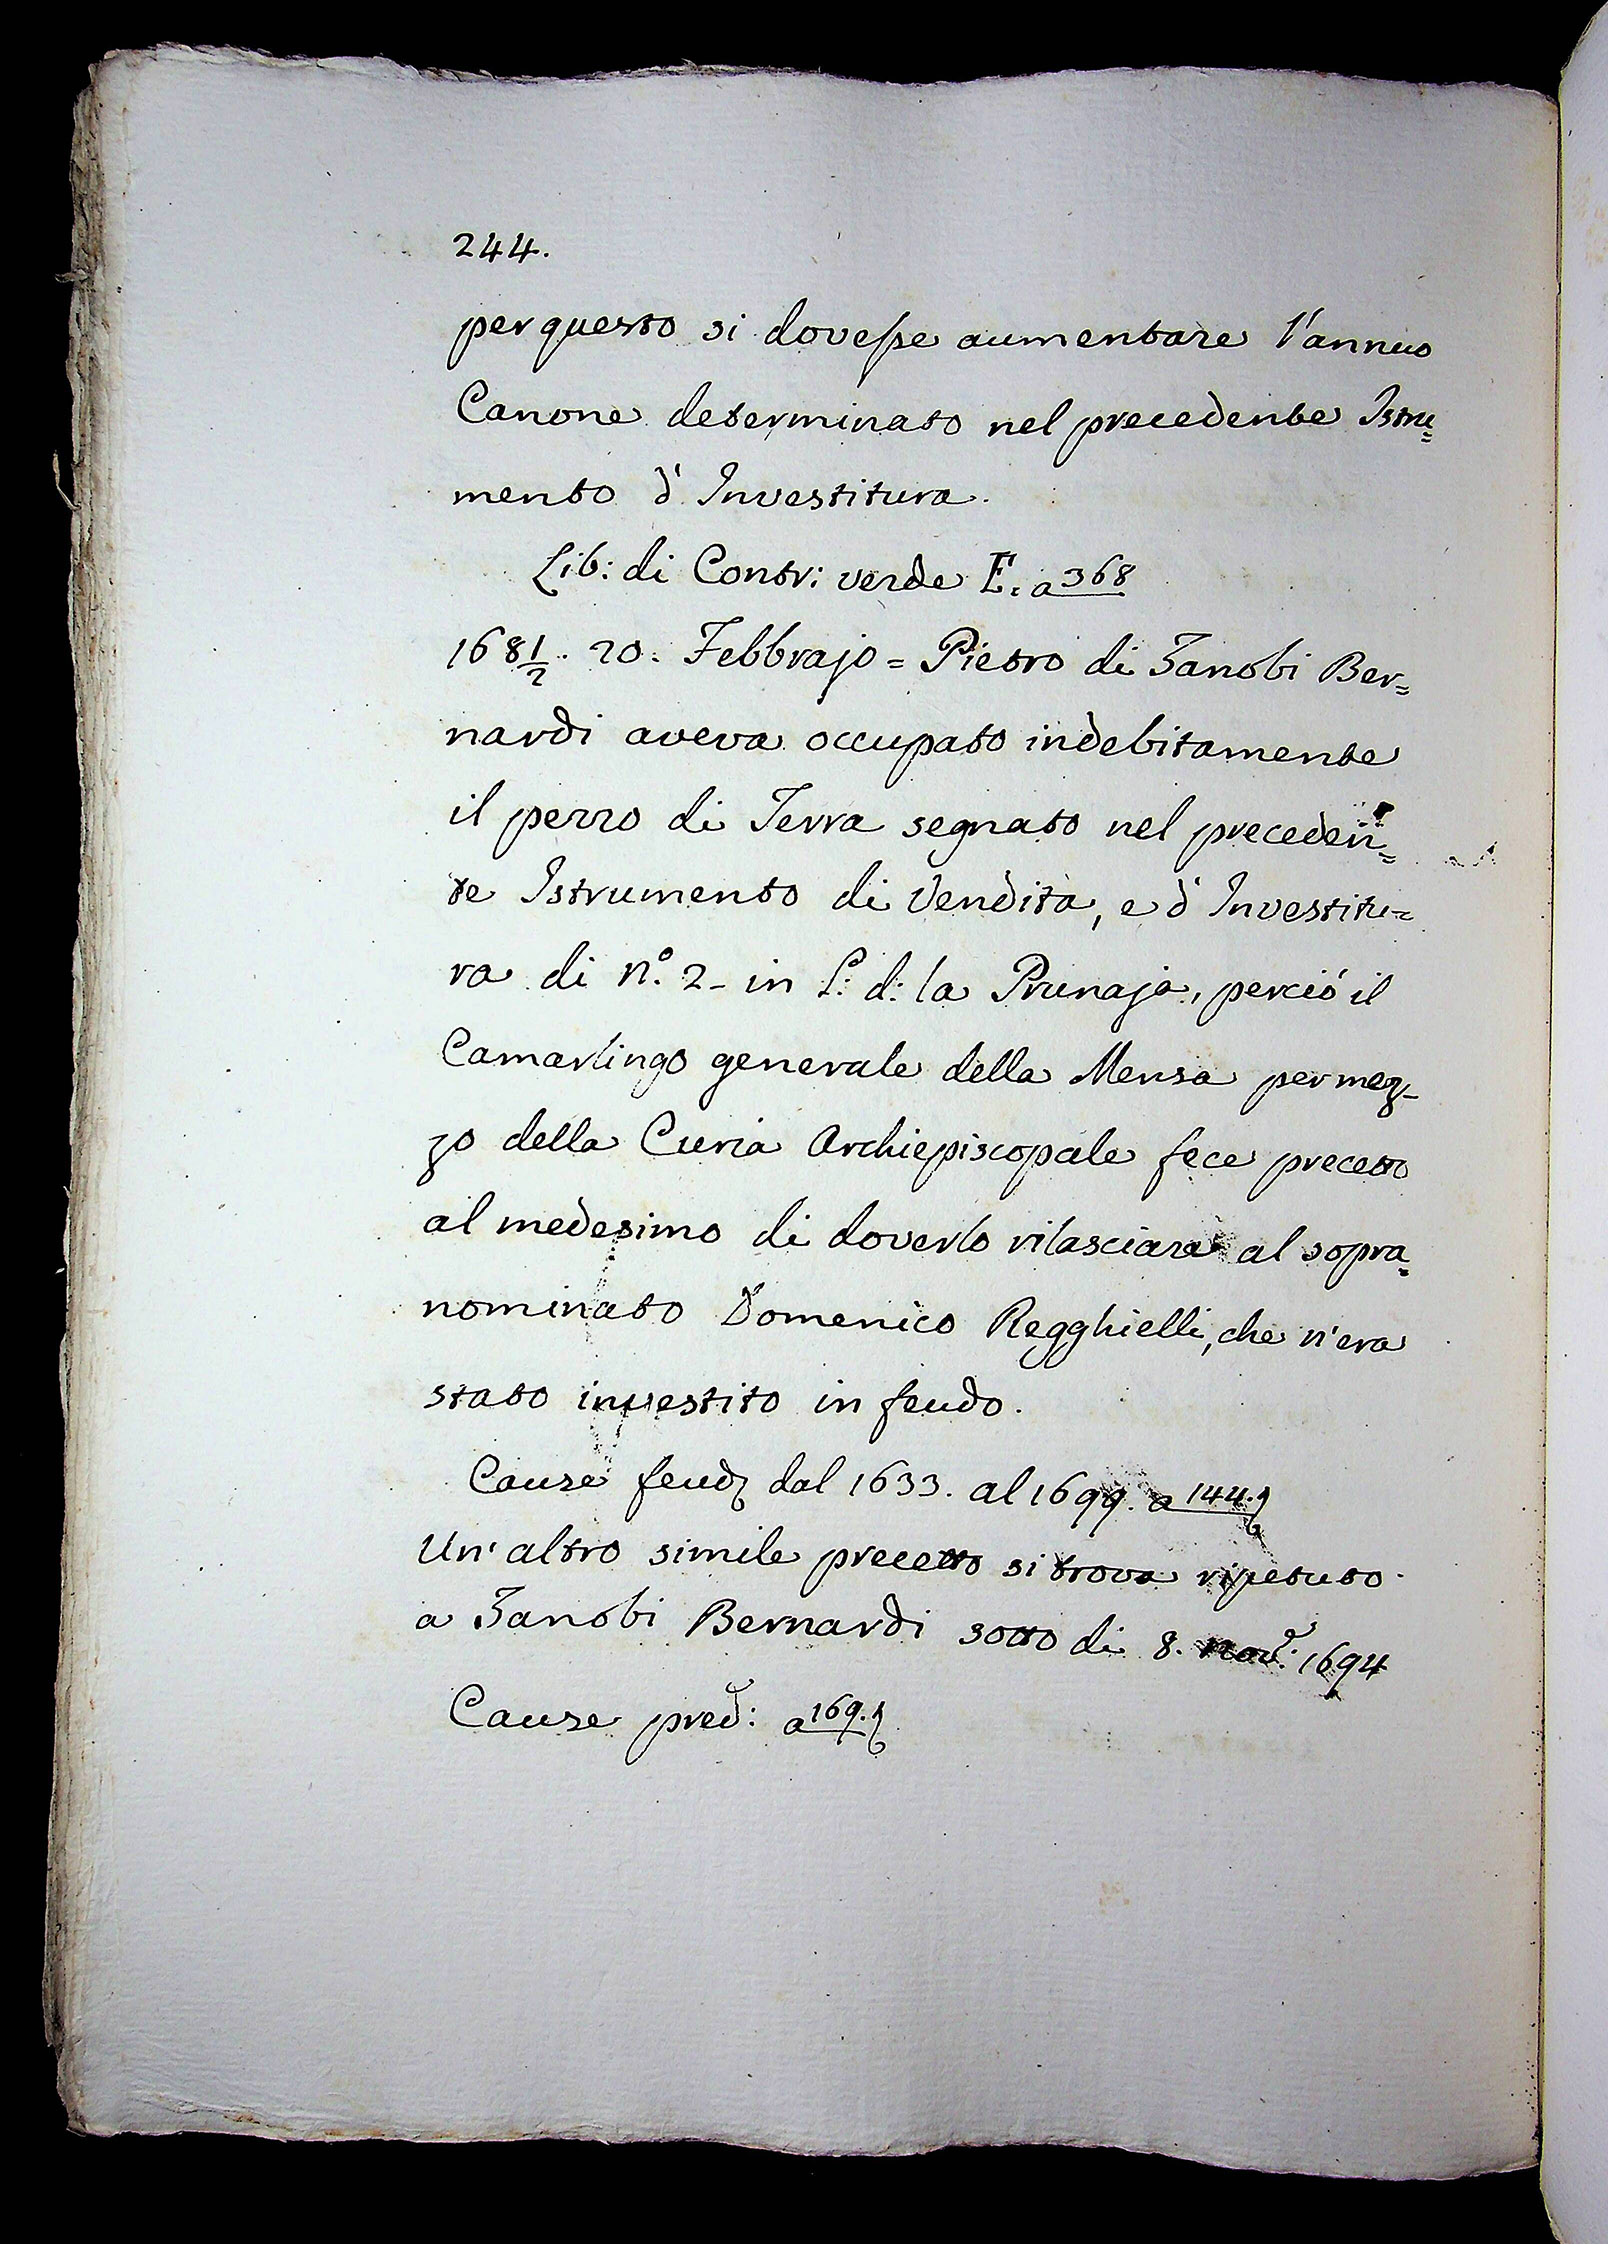 244.
per questo si dovesse aumentare l'annuo
Canone determinato nel precedente Istru=
mento d'Investitura.
Lib: di Contr: verde E. a 368
168 1/2. 20. Febbrajo = Pietro di Zanobi Ber=
nardi aveva occupato indebitamente
il pezzo di Terra segnato nel preceden=
te Istrumento di Vendita, e d'Investitu=
ra di n.° 2 - in L: d: la Prunaja, perciò il
Camarlingo generale della Mensa per mez-
zo della Curia Archiepiscopale fece precetto
al medesimo di doverlo rilasciare al sopra=
nominato Domenico Regghielli, che n'era
stato investito in feudo.
Cause feud. dal 1633. al 1699. a 144.
Un'altro simile precetto si trova ripetuto
a Zanobi Bernardi sotto di 8. Nov.e: 1694
Cause pred.e: a 169.